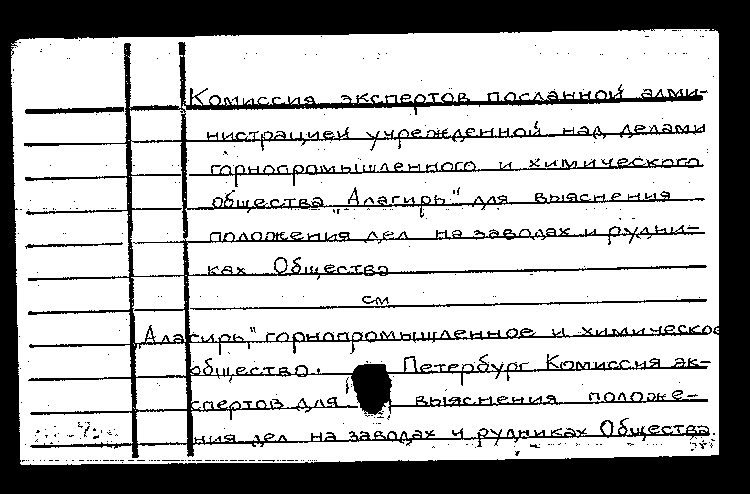 Комиссия экспертов посланной адми-
нистрацией учрежденной над делами
горнопромышленного и химического
общества „Алагирь" для выяснения
положения дел на заводах и рудни=
ках Общества
см
„Алагирь," горнопромышленное и химическое
общество. Петербург Комиссия эк-
спертов для выяснения положе-
ния дел на заводах и рудниках Общества